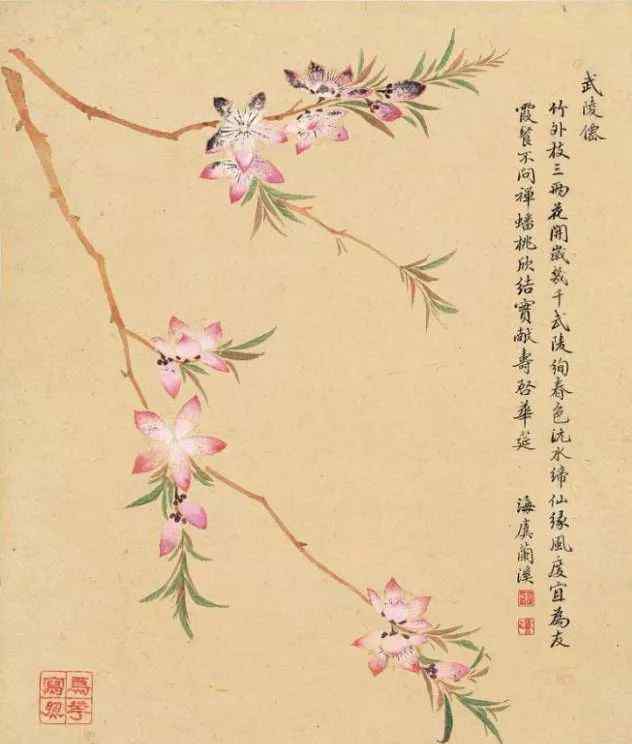 武陵僊
竹外枝三兩花開歲幾千武陵絢春色沅水締仙緣風度宜為友
霞餐不問禪蟠桃欣結實獻壽啓華筵
海虞蘭溪
馬荃
寫